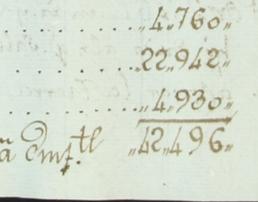 ........„4„760„
........„22„942„
........„4„930„
ã Omſ.tl „42„496„